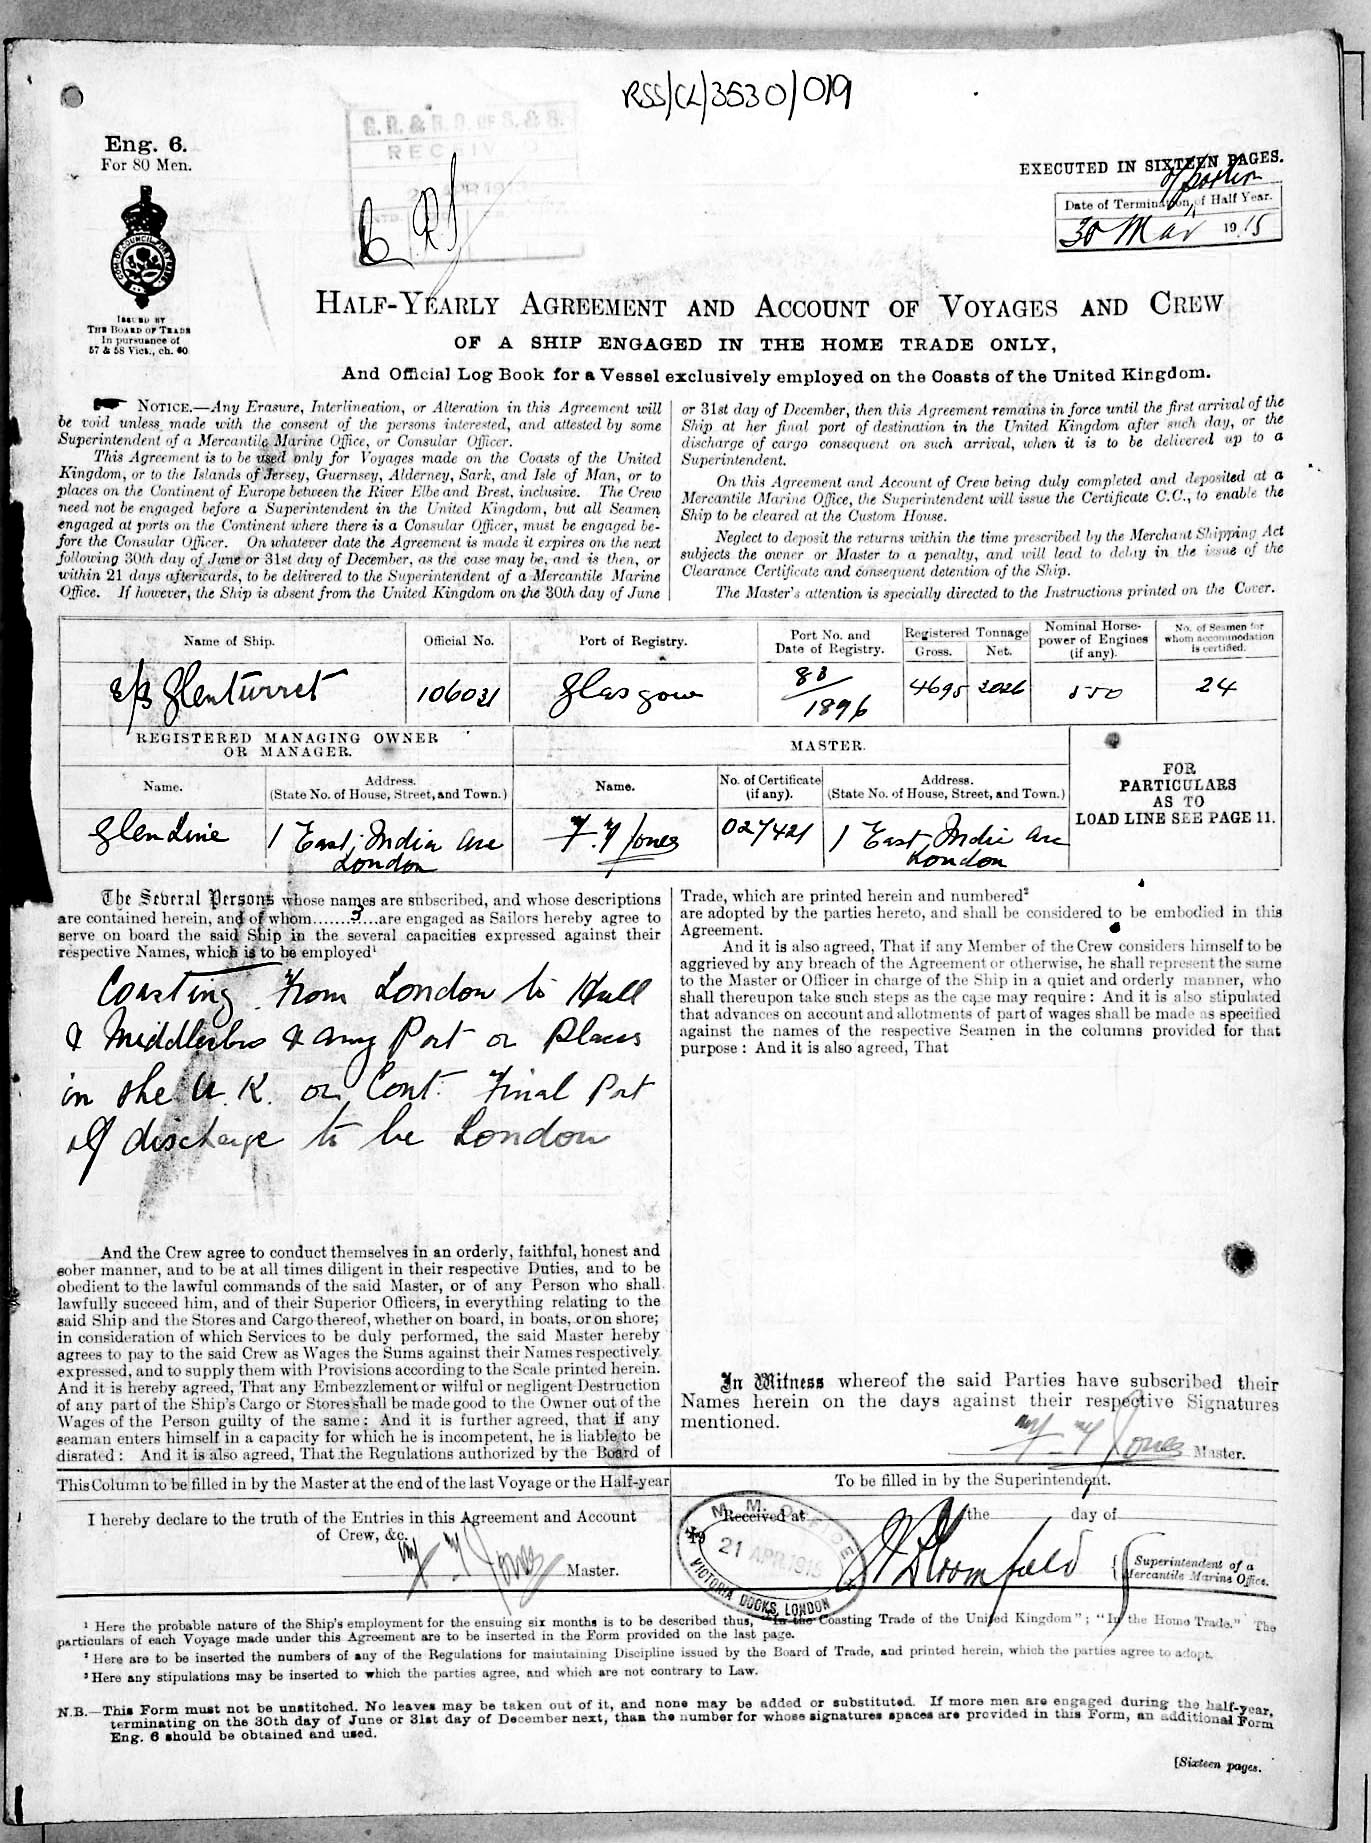 RSS/CL/3530/019
Eng. 6.
For 80 Men.
ISSUED BY
THE BOARD OF TRADE
In pursuance of
57 & 58 Vict., ch. 60
RECEIVED
EXECUTED IN SIXTEEN PAGES.
of portion
Date of Termination of Half Year.
30 Mar 1915
HALF-YEARLY AGREEMENT AND ACCOUNT OF VOYAGES AND CREW
OF A SHIP ENGAGED IN THE HOME TRADE ONLY,
And Official Log Book for a Vessel exclusively employed on the Coasts of the United Kingdom.
NOTICE.—Any Erasure, Interlineation, or Alteration in this Agreement will
be void unless made with the consent of the persons interested, and attested by some
Superintendent of a Mercantile Marine Office, or Consular Officer.
This Agreement is to be used only for Voyages made on the Coasts of the United
Kingdom, or to the Islands of Jersey, Guernsey, Alderney, Sark, and Isle of Man, or to
places on the Continent of Europe between the River Elbe and Brest, inclusive. The Crew
need not be engaged before a Superintendent in the United Kingdom, but all Seamen
engaged at ports on the Continent where there is a Consular Officer, must be engaged be-
fore the Consular Officer. On whatever date the Agreement is made it expires on the next
following 30th day of June or 31st day of December, as the case may be, and is then, or
within 21 days afterwards, to be delivered to the Superintendent of a Mercantile Marine
Office. If however, the Ship is absent from the United Kingdom on the 30th day of June
or 31st day of December, then this Agreement remains in force until the first arrival of the
Ship at her final port of destination in the United Kingdom after such day, or the
discharge of cargo consequent on such arrival, when it is to be delivered up to a
Superintendent.
On this Agreement and Account of Crew being duly completed and deposited at a
Mercantile Marine Office, the Superintendent will issue the Certificate C.C., to enable the
Ship to be cleared at the Custom House.
Neglect to deposit the returns within the time prescribed by the Merchant Shipping Act
subjects the owner or Master to a penalty, and will lead to delay in the issue of the
Clearance Certificate and consequent detention of the Ship.
The Master's attention is specially directed to the Instructions printed on the Cover.
Name of Ship. Official No. Port of Registry. Port No. and Date of Registry. Registered Tonnage Gross. Net. Nominal Horse-power of Engines (if any). No. of Seamen for whom accommodation is certified.
s/s Glenturret 106031 Glasgow 83/1896 4695 3026 550 24
REGISTERED MANAGING OWNER
OR MANAGER.
MASTER.
FOR
PARTICULARS
AS TO
LOAD LINE SEE PAGE 11.
Name. Address. (State No. of House, Street, and Town.) Name. No. of Certificate (if any). Address. (State No. of House, Street, and Town.)
Glen Line 1 East India Ave London Jones 027421 1 East India Ave London
The Several Persons whose names are subscribed, and whose descriptions
are contained herein, and of whom.......3...are engaged as Sailors hereby agree to
serve on board the said Ship in the several capacities expressed against their
respective Names, which is to be employed¹
Coasting From London to Hull
& Middlesbro & any Port or Places
in the U.K. or Cont. Final Port
of discharge to be London
And the Crew agree to conduct themselves in an orderly, faithful, honest and
sober manner, and to be at all times diligent in their respective Duties, and to be
obedient to the lawful commands of the said Master, or of any Person who shall
lawfully succeed him, and of their Superior Officers, in everything relating to the
said Ship and the Stores and Cargo thereof, whether on board, in boats, or on shore;
in consideration of which Services to be duly performed, the said Master hereby
agrees to pay to the said Crew as Wages the Sums against their Names respectively
expressed, and to supply them with Provisions according to the Scale printed herein.
And it is hereby agreed, That any Embezzlement or wilful or negligent Destruction
of any part of the Ship's Cargo or Stores shall be made good to the Owner out of the
Wages of the Person guilty of the same: And it is further agreed, that if any
seaman enters himself in a capacity for which he is incompetent, he is liable to be
disrated: And it is also agreed, That the Regulations authorized by the Board of
Trade, which are printed herein and numbered²
are adopted by the parties hereto, and shall be considered to be embodied in this
Agreement.
And it is also agreed, That if any Member of the Crew considers himself to be
aggrieved by any breach of the Agreement or otherwise, he shall represent the same
to the Master or Officer in charge of the Ship in a quiet and orderly manner, who
shall thereupon take such steps as the case may require: And it is also stipulated
that advances on account and allotments of part of wages shall be made as specified
against the names of the respective Seamen in the columns provided for that
purpose: And it is also agreed, That
In Witness whereof the said Parties have subscribed their
Names herein on the days against their respective Signatures
mentioned.
Jones Master.
This Column to be filled in by the Master at the end of the last Voyage or the Half-year
I hereby declare to the truth of the Entries in this Agreement and Account
of Crew, &c.
Jones Master.
To be filled in by the Superintendent.
Received at the day of
19
M. M. OFFICE
21 APR 1915
VICTORIA DOCKS, LONDON
Bloomfield
Superintendent of a
Mercantile Marine Office.
¹ Here the probable nature of the Ship's employment for the ensuing six months is to be described thus, "In the Coasting Trade of the United Kingdom"; "In the Home Trade." The
particulars of each Voyage made under this Agreement are to be inserted in the Form provided on the last page.
² Here are to be inserted the numbers of any of the Regulations for maintaining Discipline issued by the Board of Trade, and printed herein, which the parties agree to adopt.
³ Here any stipulations may be inserted to which the parties agree, and which are not contrary to Law.
N.B.—This Form must not be unstitched. No leaves may be taken out of it, and none may be added or substituted. If more men are engaged during the half-year,
terminating on the 30th day of June or 31st day of December next, than the number for whose signatures spaces are provided in this Form, an additional Form
Eng. 6 should be obtained and used.
[Sixteen pages.